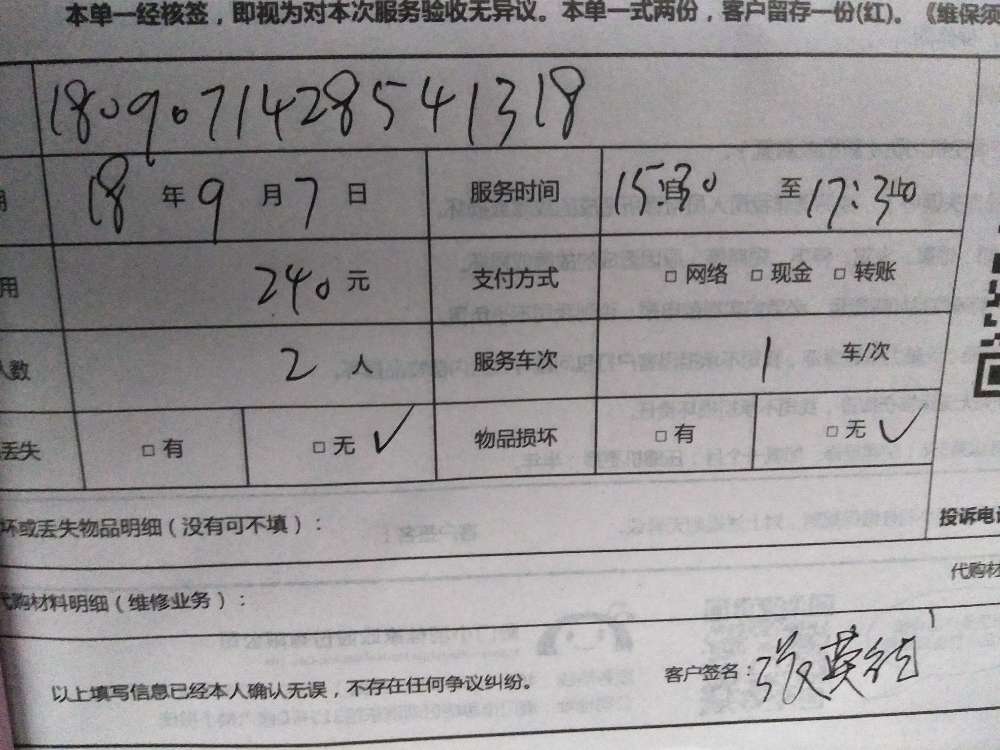 本单一经核签，即视为对本次服务验收无异议。本单一式两份，客户留存一份(红)。《维保须
180907142854 1318
期 18 年 9 月 7 日 服务时间 15:30 自 至 17:30 止
用 240 元 支付方式 □ 网络 □ 现金 □ 转账
人数 2 人 服务车次 1 车/次
丢失 □ 有 □ 无 ✓ 物品损坏 □ 有 □ 无 ✓
坏或丢失物品明细（没有可不填）：
投诉电话
代购材
代购材料明细（维修业务）：
以上填写信息已经本人确认无误，不存在任何争议纠纷。 客户签名：张英